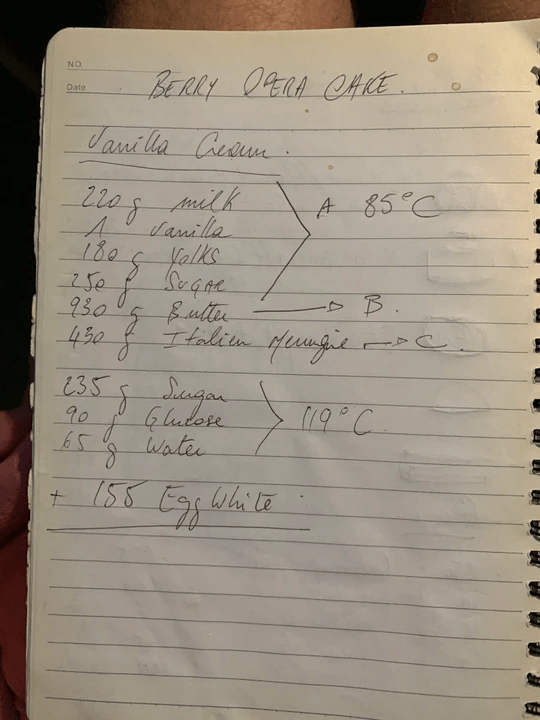 NO.
Date BERRY OPERA CAKE.
Vanilla Cream.
220 g milk
1 Vanilla
180 g Yolks
250 g Sugar
A 85°C
930 g Butter → B.
430 g Italien Meringue → C.
235 g Sugar
90 g Glucose
65 g Water
119°C
+ 155 Egg White